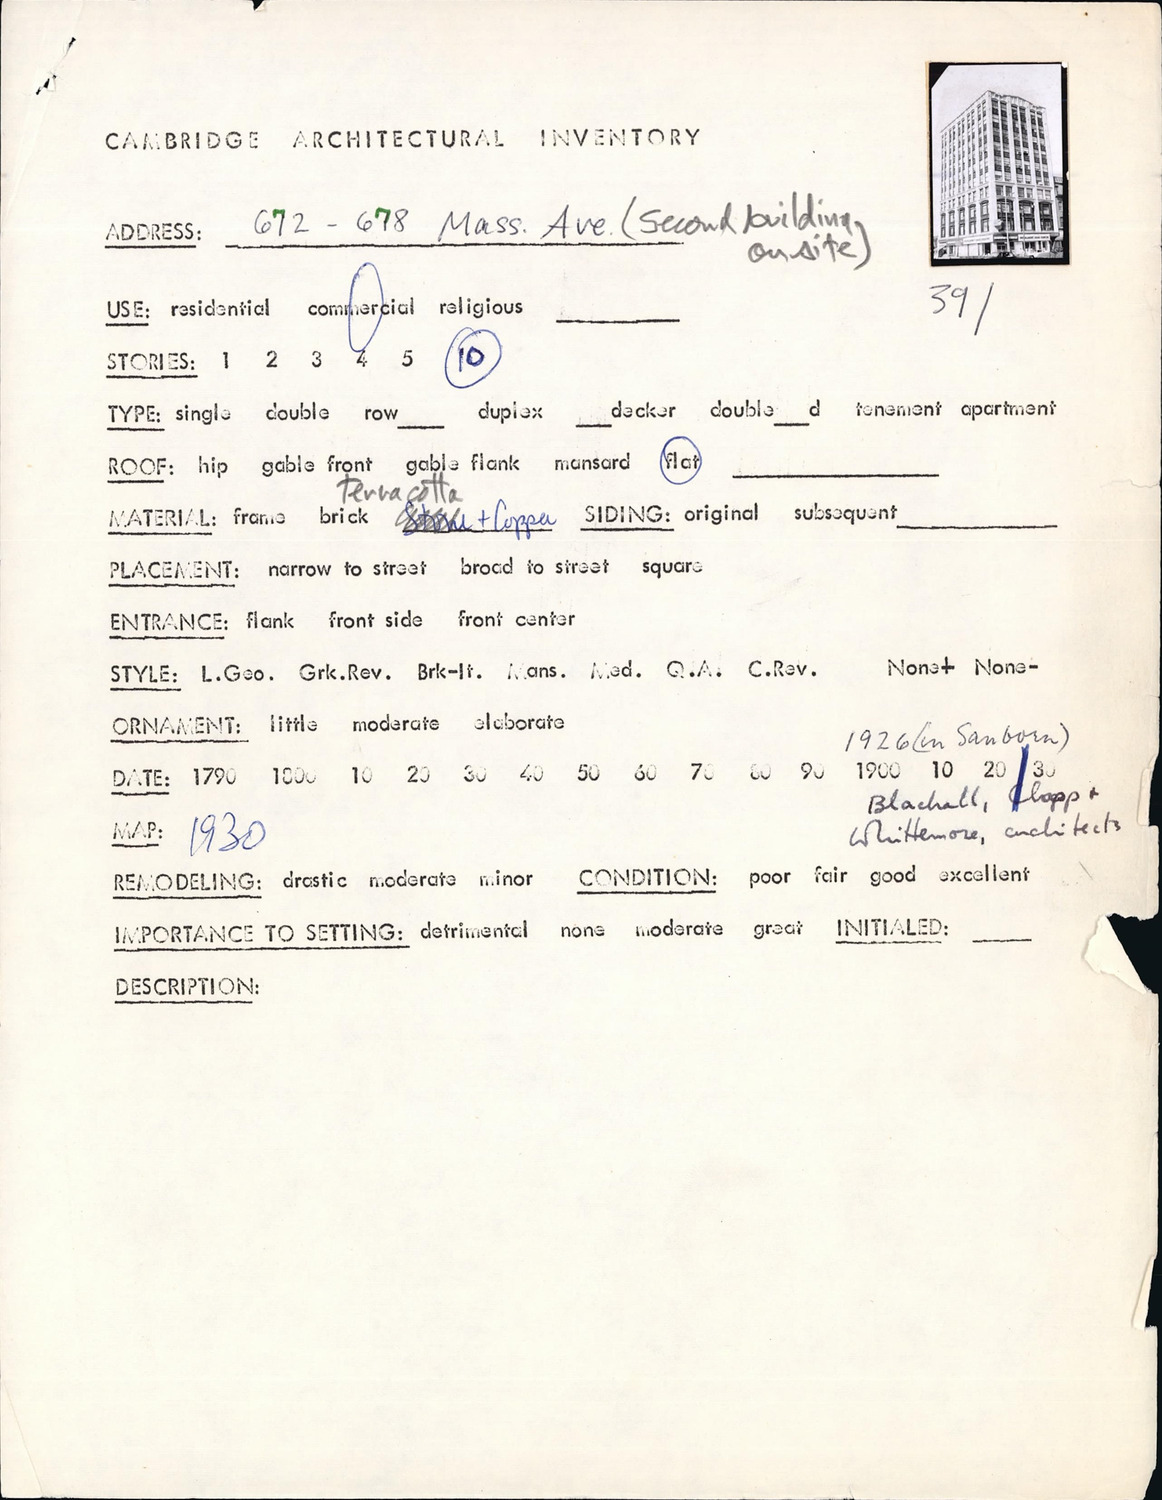 CAMBRIDGE ARCHITECTURAL INVENTORY
ADDRESS: 672 - 678 Mass. Ave. (Second building
on site)
39/
USE: residential commercial religious
STORIES: 1 2 3 4 5 10
TYPE: single double row____ duplex ___decker double___d tenement apartment
ROOF: hip gable front gable flank mansard flat
Terra cotta
MATERIAL: frame brick Stone + Copper SIDING: original subsequent
PLACEMENT: narrow to street broad to street square
ENTRANCE: flank front side front center
STYLE: L.Geo. Grk.Rev. Brk-It. Mans. Med. Q.A. C.Rev. None+ None-
ORNAMENT: little moderate elaborate
1926 (in Sanborn)
DATE: 1790 1800 10 20 30 40 50 60 70 80 90 1900 10 20 30
Blachall, Clapp +
Whittemore, architects
MAP: 1930
REMODELING: drastic moderate minor CONDITION: poor fair good excellent
IMPORTANCE TO SETTING: detrimental none moderate great INITIALED:
DESCRIPTION: